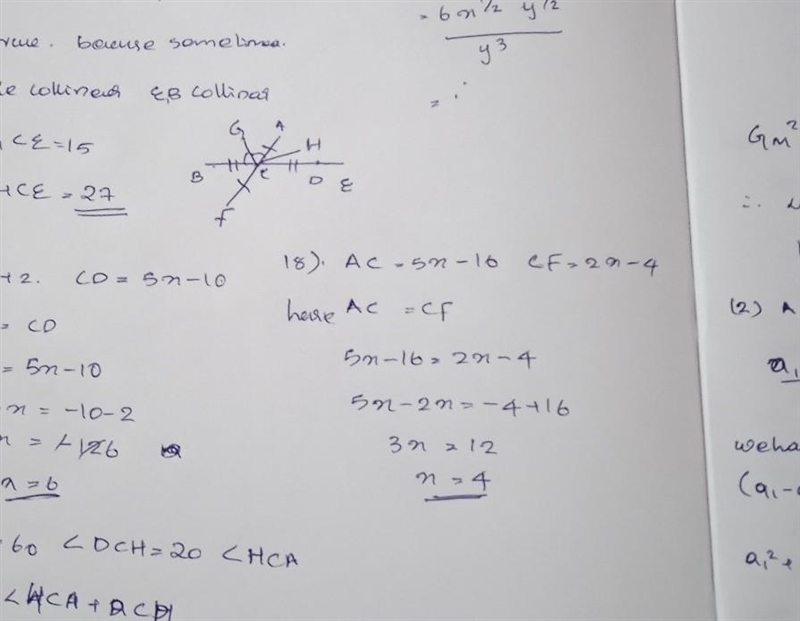 because sometimes.
collinear E,B collinear
CE=15
HCE = 27
G A H B C D E F
+2. CD = 5x-10
= CD
= 5x-10
x = -10-2
x = 6
= 60 <DCH = 20 <HCA
<HCA +
= 6x^1/2 y^1/2
y^3
= ..
18). AC = 5x-16 CF = 2x-4
here AC = CF
5x-16 = 2x-4
5x-2x = -4+16
3x = 12
x = 4
Gm^2
∴
(2) A
a1
weha
(a1-
a1^2+